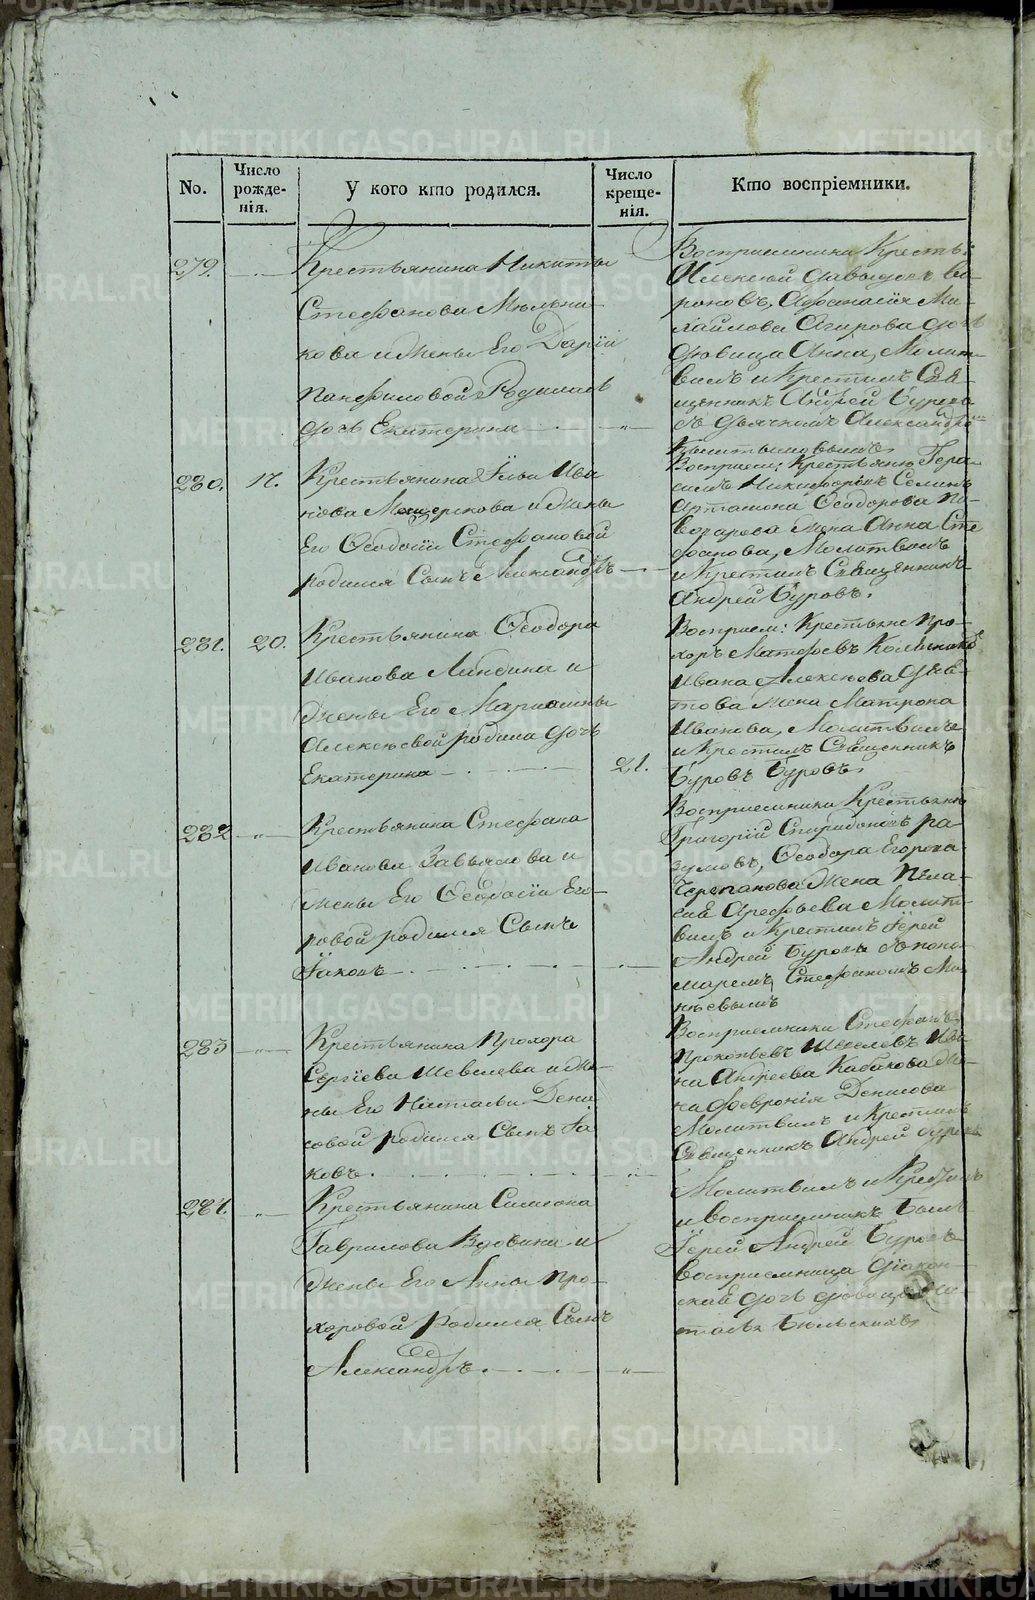 No.
Число рожде-
нія.
У кого кто родился.
Число
креще-
нія.
Кто воспріемники.
279.
Крестьянина Никиты
Стефанова Мельни-
кова и жены Его Дарiи
Панфиловой Родилась
дочь Екатерина
Восприемники Кресть:
Алексей Давыдовъ Во-
роновъ, Афанасия Ми-
хайлова дочь
девица Анна, Молит-
вилъ и Крестилъ Свя-
щенникъ Андрей Буровъ
съ дьячкомъ Александро-
280. 17.
Крестьянина Ильи Ива-
нова и жены
Его Феодосiи Стефановой
родился Сынъ Александръ
Восприем: Крестьяне Гера-
симъ Никифоровъ Соминъ
Артамона Феодорова По-
варова жена Анна Сте-
фанова, Молитвилъ
и Крестилъ Священникъ
Андрей Буровъ.
281. 20.
Крестьянина Феодора
Иванова и
жены Его Марианны
Алексеевой родила дочь
Екатерина
21.
Восприем: Крестьяне Про-
хоръ Матфеевъ
Ивана Алексеева
жена Матрона
Иванова, Молитвилъ
и Крестилъ Священникъ
Буровъ Буровъ.
282
Крестьянина Стефана
Иванова Завьялова и
жены Его Феодосiи Его-
ровой родился Сынъ
Iаковъ
Восприемники Крестьяне
Григорiй Спиридоновъ Ра-
зумовъ, Феодора Егорова
Черепанова жена Пела-
гия Арефьева Молит-
вилъ и Крестилъ Iерей
Андрей Буровъ съ поно-
маремъ Стефаномъ Ми-
неевымъ
283
Крестьянина Прохора
Сергiева Шевелева и же-
ны Его Натальи Дени-
совой родился Сынъ Iа-
ковъ
Восприемники Стефанъ
Прокопьевъ Шевелевъ Ива-
на Андреева Кабакова же-
на Февронiя Денисова
Молитвилъ и Крестилъ
Священникъ Андрей Буровъ
284.
Крестьянина Симеона
Гаврилова Вдовина и
жены Его Анны Про-
хоровой родился Сынъ
Александръ
Молитвилъ и Крестилъ
и восприемникъ Былъ
Iерей Андрей Буровъ
восприемница Дiакон-
ская дочь девица На-
талья Бельскихъ
METRIKI.GASO-URAL.RU